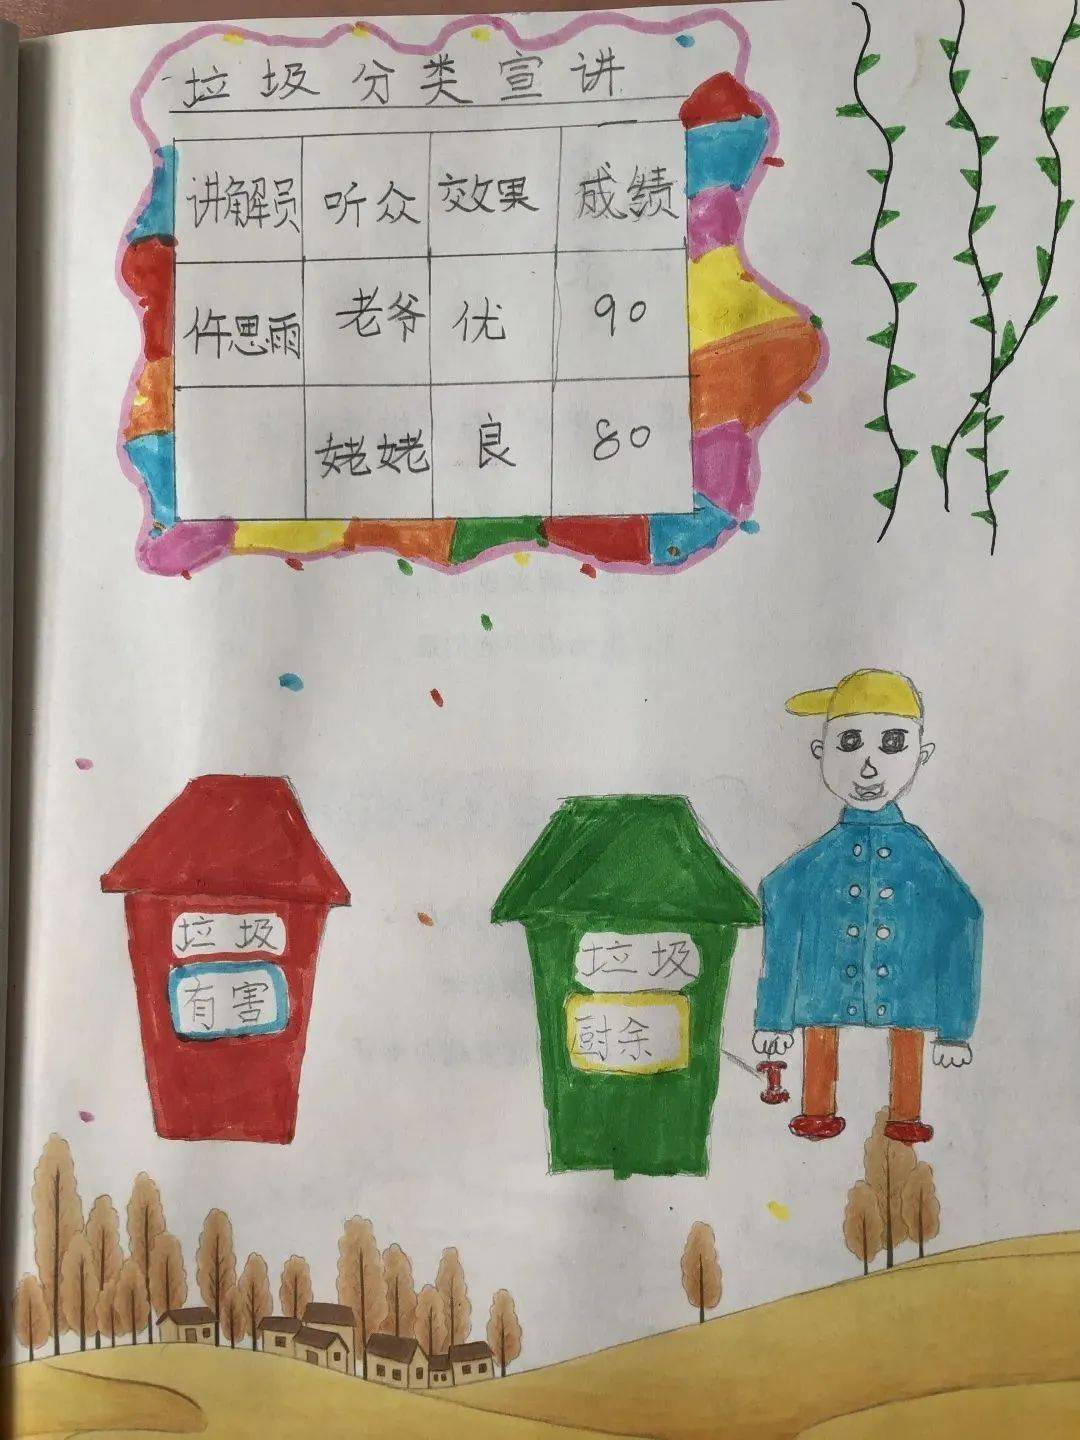 垃圾分类宣讲
讲解员 听众 效果 成绩
仵思雨 老爷 优 90
姥姥 良 80
垃圾
有害
垃圾
厨余